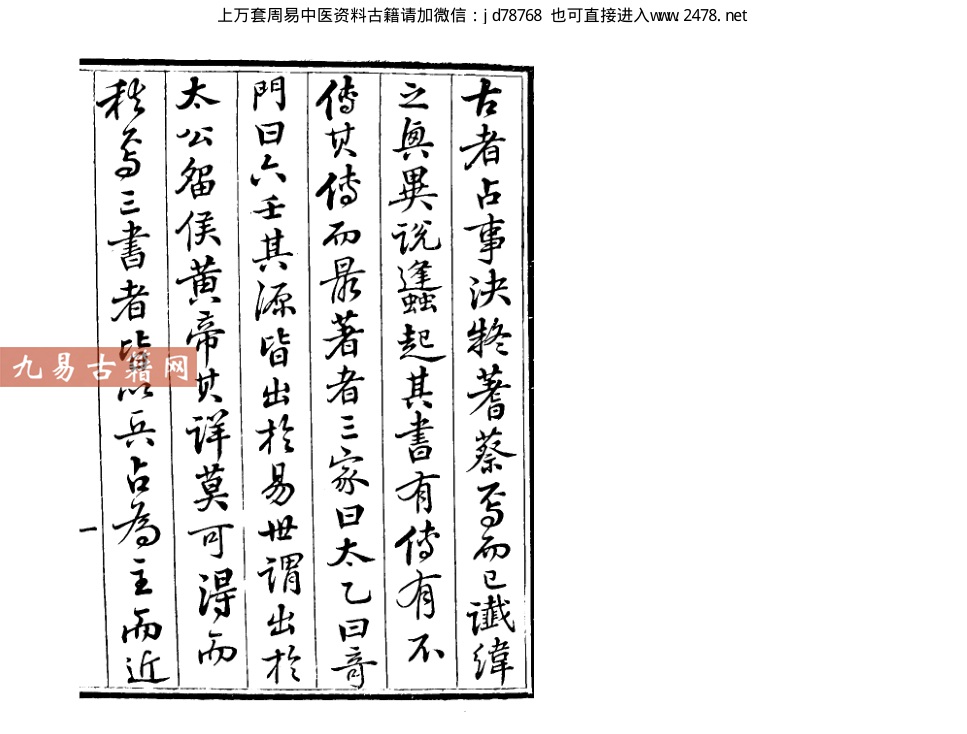 上万套周易中医资料古籍请加微信：jd78768 也可直接进入www.2478.net
古者占事決於蓍蔡焉而已讖緯
之興異說蠭起其書有傳有不
傳其傳而最著者三家曰太乙曰竒
門曰六壬其源皆出於易世謂出於
太公留侯黃帝其詳莫可淂而
稽焉三書者皆以兵占為主而近
一
九易古籍网